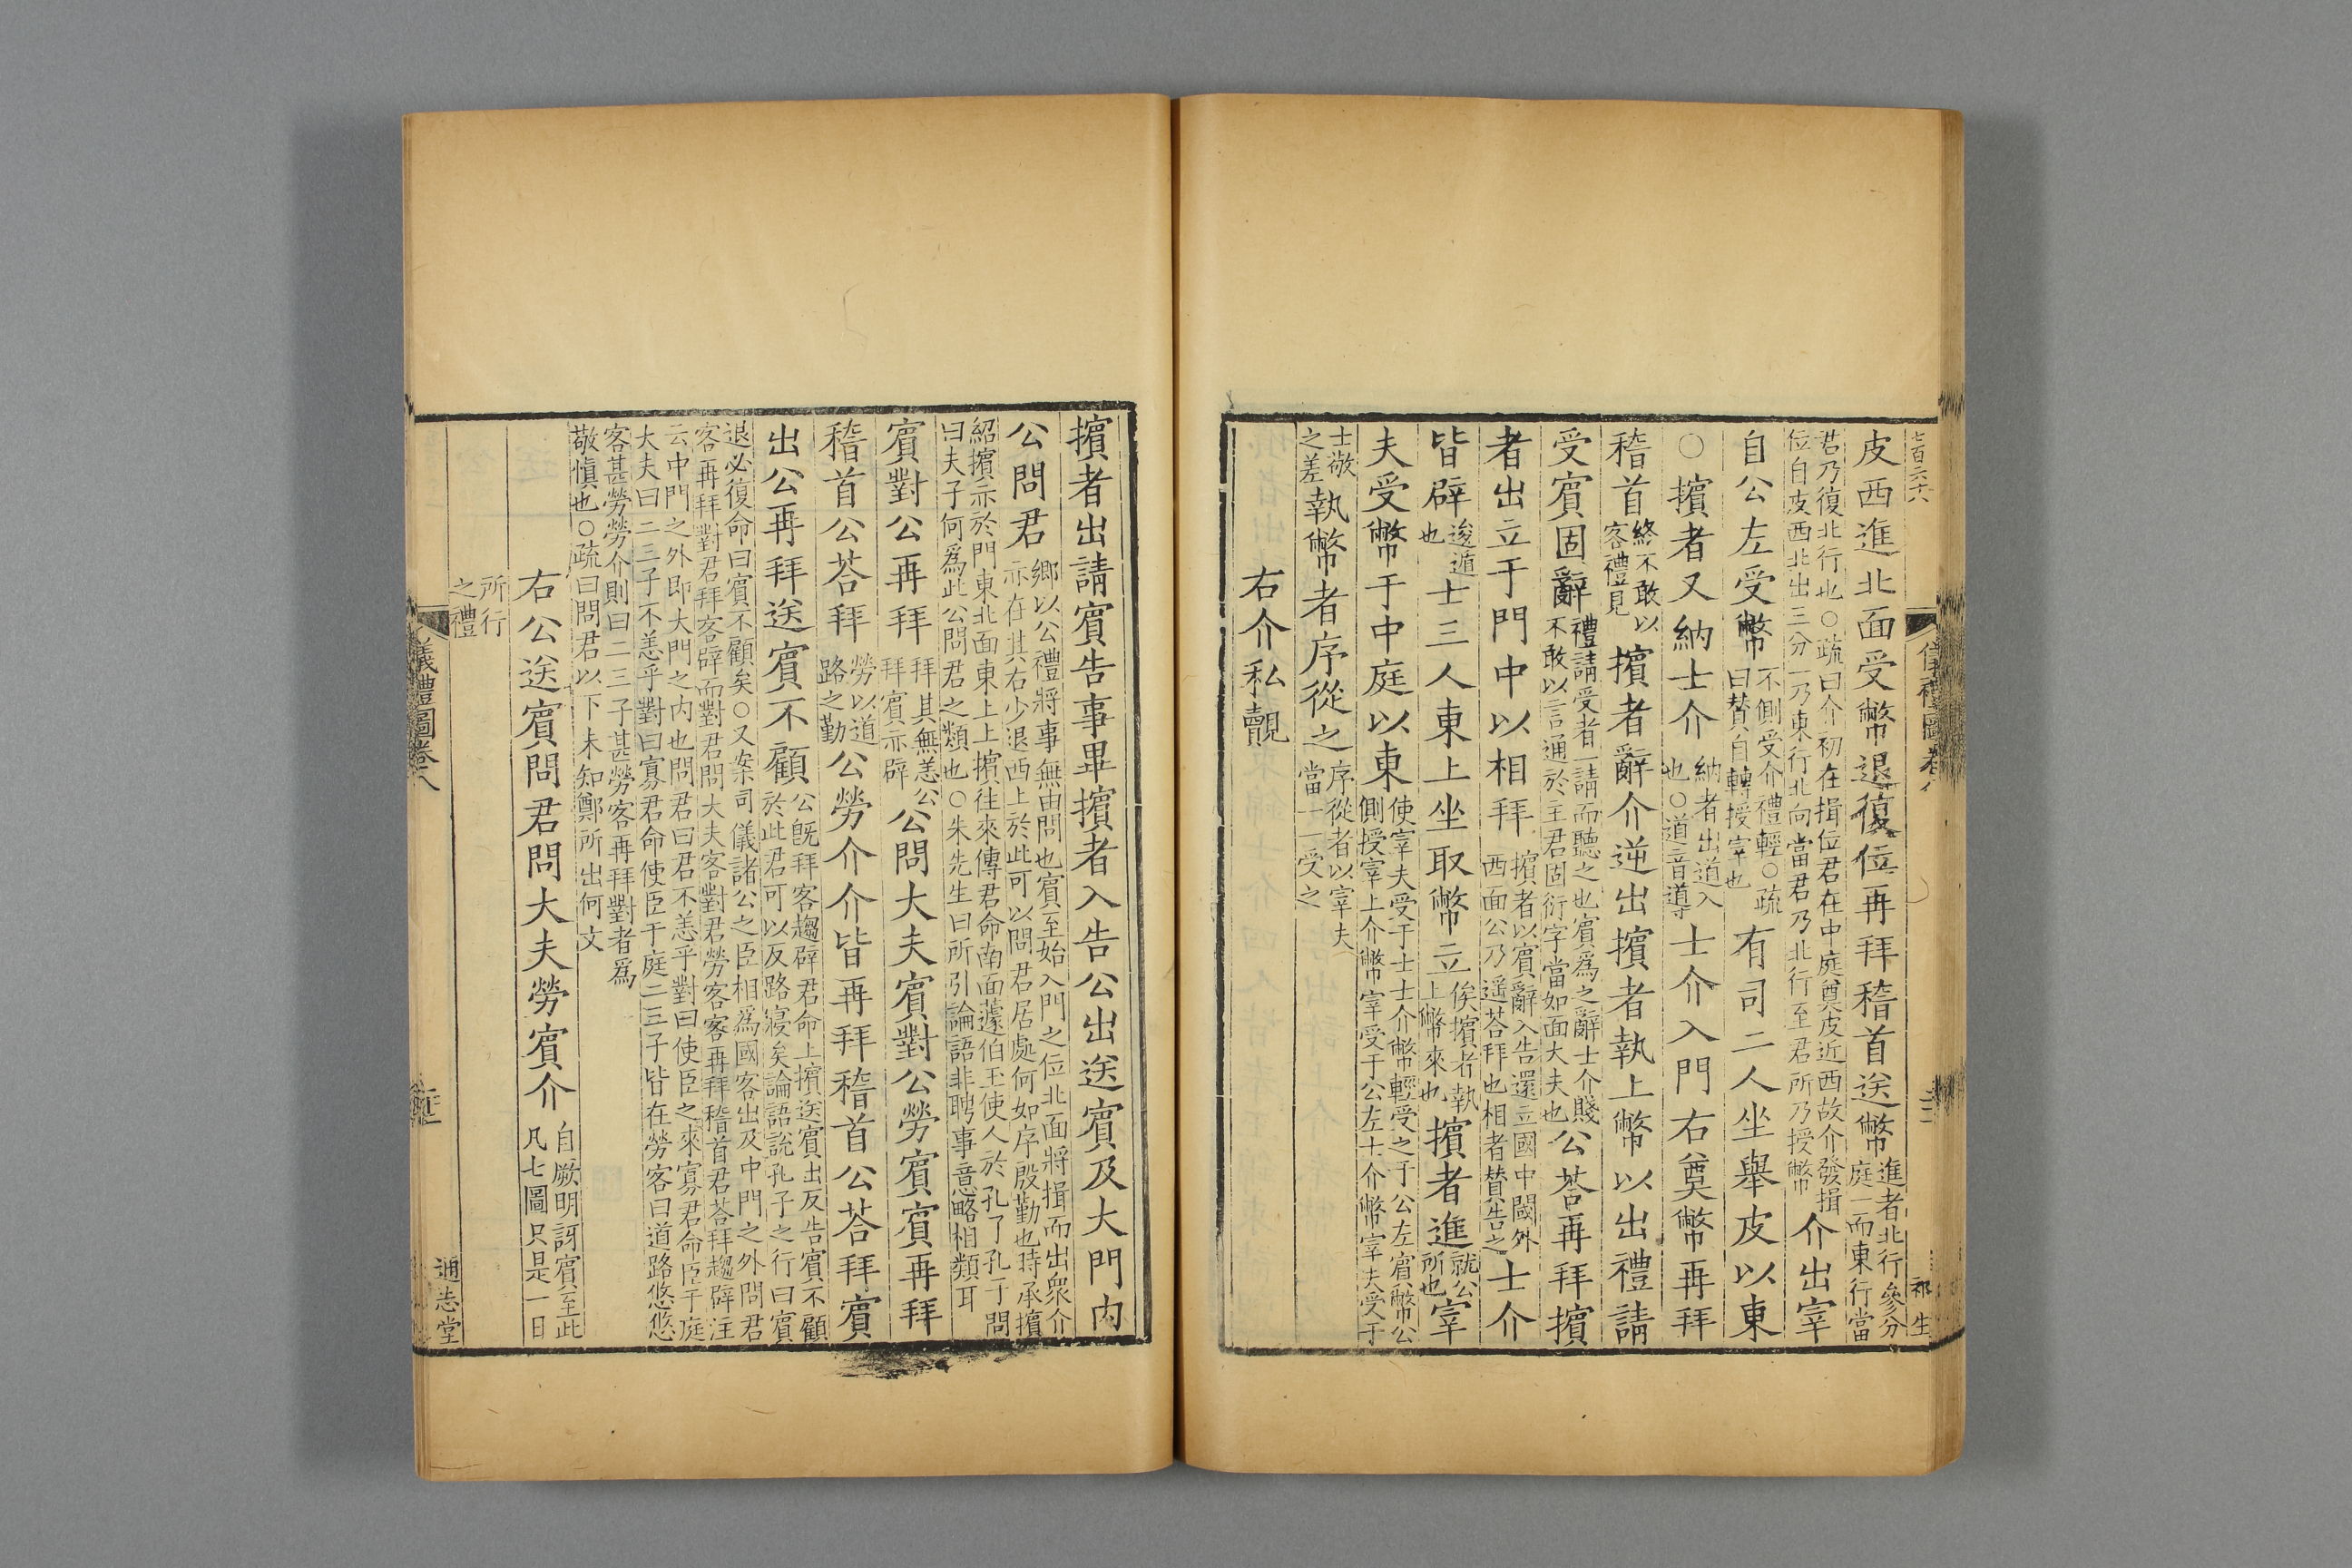 七百六十六
儀禮圖卷八
祁生
皮西進北面受幣退復位再拜稽首送幣進者北行參分庭一而東行當
君乃復北行也○疏曰介初在揖位君在中庭奠皮近西故介發揖位自皮西北出三分一乃東行北向當君乃北行至君所乃授幣介出宰
自公左受幣不側受介禮輕○疏曰贊自轉授宰也有司二人坐舉皮以東
○擯者又納士介納者出道入也○道音導士介入門右奠幣再拜
稽首終不敢以客禮見擯者辭介逆出擯者執上幣以出禮請
受賓固辭禮請受者一請而聽之也賓爲之辭士介賤不敢以言通於主君固衍字當如面大夫也公荅再拜擯
者出立于門中以相拜擯者以賓辭入告還立國中閾外西面公乃遥荅拜也相者贊告之士介
皆辟逡遁也士三人東上坐取幣立俟擯者執上幣來也擯者進就公所也宰
夫受幣于中庭以東使宰夫受于士士介幣輕受之于公左賓幣公側授宰上介幣宰受于公左士介幣宰夫受于
士敬之差執幣者序從之序從者以宰夫當一一受之
右介私覿
擯者出請賓告事畢擯者入告公出送賓及大門內
公問君鄉以公禮將事無由問也賓至始入門之位北面將揖而出衆介亦在其右少退西上於此可以問君居處何如序殷勤也時承擯
紹擯亦於門東北面東上上擯往來傳君命南面蘧伯玉使人於孔子孔子問曰夫子何爲此公問君之類也○朱先生曰所引論語非聘事意略相類耳
賓對公再拜拜其無恙公拜賓亦辟公問大夫賓對公勞賓賓再拜
稽首公荅拜勞以道路之勤公勞介介皆再拜稽首公荅拜賓
出公再拜送賓不顧公旣拜客趨辟君命上擯送賓出反告賓不顧於此君可以反路寢矣論語說孔子之行曰賓
退必復命曰賓不顧矣○又案司儀諸公之臣相爲國客出及中門之外問君客再拜對君拜客辟而對君問大夫客對君勞客客再拜稽首君荅拜趨辟注
云中門之外即大門之內也問君曰君不恙乎對曰使臣之來寡君命臣于庭大夫曰二三子不恙乎對曰寡君命使臣于庭二三子皆在勞客曰道路悠悠
客甚勞勞介則曰二三子甚勞客再拜對者爲敬愼也○疏曰問君以下未知鄭所出何文
右公送賓問君問大夫勞賓介自厥明訝賓至此凡七圖只是一日
所行之禮
儀禮圖卷八
通志堂